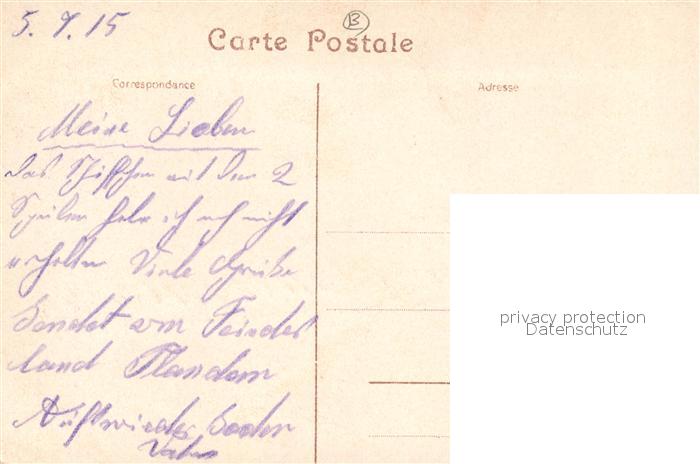 5. 9. 15
B
Carte Postale
Correspondance
Adresse
Meine Lieben
Das Schiffchen mit den 2
habe ich noch nicht
erhalten Viele Grüße
Sendet vom Feindes
land Flandern
Auf wieder
Vater
privacy protection
Datenschutz